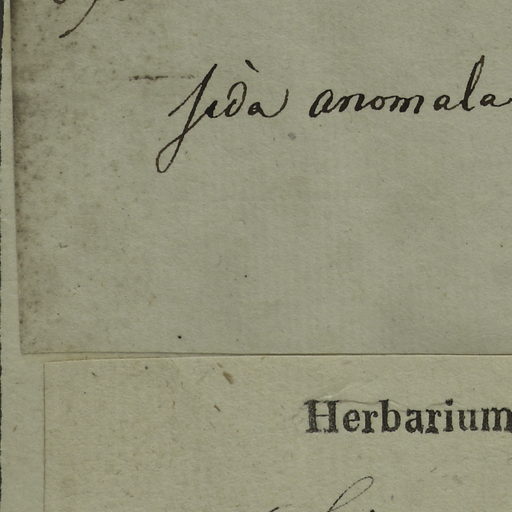 sida anomala
Herbarium